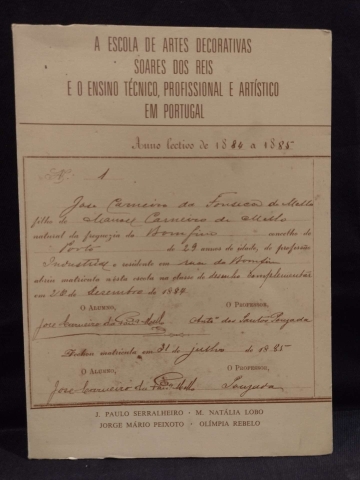 A ESCOLA DE ARTES DECORATIVAS
SOARES DOS REIS
E O ENSINO TÉCNICO, PROFISSIONAL E ARTÍSTICO
EM PORTUGAL
Anno lectivo de 1884 a 1885
N.º 1
Jose Carneiro da Fonseca de Mello
filho de Manoel Carneiro de Mello
natural da freguezia do Bomfim concelho
Porto de 29 annos de idade, de profissão
Industrial e residente em rua do Bomfim
abriu matricula nesta escola na classe de desenho complementar
em 20 de Dezembro de 1884
O ALUMNO, O PROFESSOR,
Jose Carneiro da Mello Antº dos Santos Pouzada
matricula em 31 de julho de 1885
O ALUMNO, O PROFESSOR,
Jose Carneiro da Mello Pouzada
J. PAULO SERRALHEIRO · M. NATÁLIA LOBO
JORGE MÁRIO PEIXOTO · OLÍMPIA REBELO